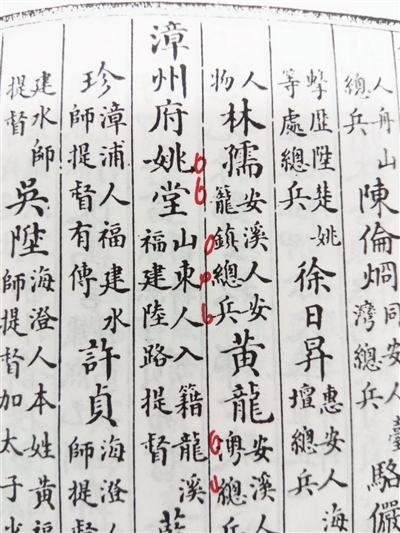 人舟山總兵陳倫烱同安人臺灣總兵駱儼
擊歷陞楚姚等處總兵徐日昇惠安人海壇總兵
人物林孺安溪人安籠鎮總兵黃龍安溪人總兵
漳州府姚堂山東人入籍龍溪福建陸路提督
珍漳浦人福建水師提督有傳許貞海澄人師提督
建水師提督吳陞海澄人本姓黃福師提督加太子